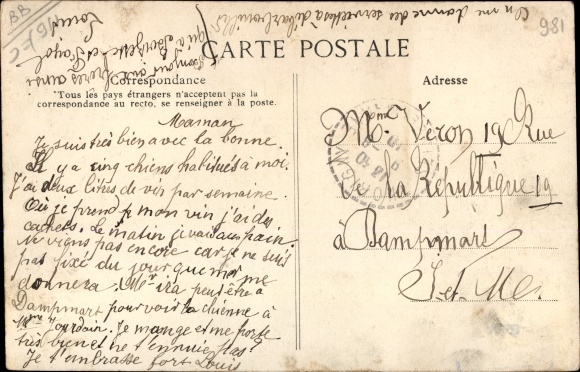 BB
981
On me donne des serviettes à débarbouiller
CARTE POSTALE
Bonjour aux frères ainsi
qu'à Georgette et
Louis
Correspondance
Adresse
*Tous les pays étrangers n'acceptent pas la
correspondance au recto, se renseigner à la poste.
Maman
Je suis très bien avec la bonne.
Il y a cinq chiens habitués à moi.
J'ai deux litres de vin par semaine.
Où je prends mon vin j'ai des
cachets. Le matin je vais au pain.
Ne viens pas encore car je ne suis
pas fixé du jour que me
donnera. Mme ira peut être à
Dampmart pour voir la chienne à
Mme Jourdain. Je mange et me porte
très bien et ne t'ennuie pas.
Je t'embrasse fort Louis
Mme Véron 19 Rue
de la République 19
à Dampmart
S. et M.